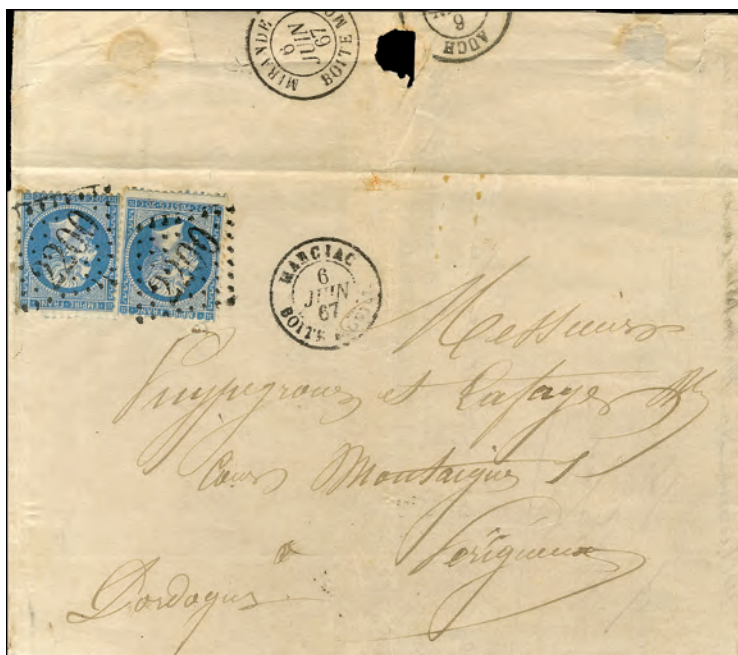 MIRANDE
6
JUIN
67
BOITE MO
AUCH
6
2200
2200
MARCIAC
6
JUIN
67
BOITE
Messieurs
et Lafaye
Cours Montaigne
à Périgueux
Dordogne